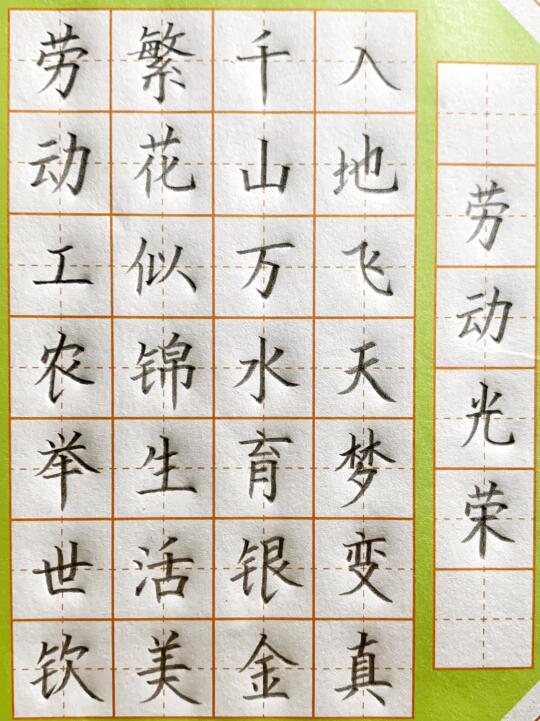 劳动光荣
入地飞天梦变真
千山万水育银金
繁花似锦生活美
劳动工农举世钦